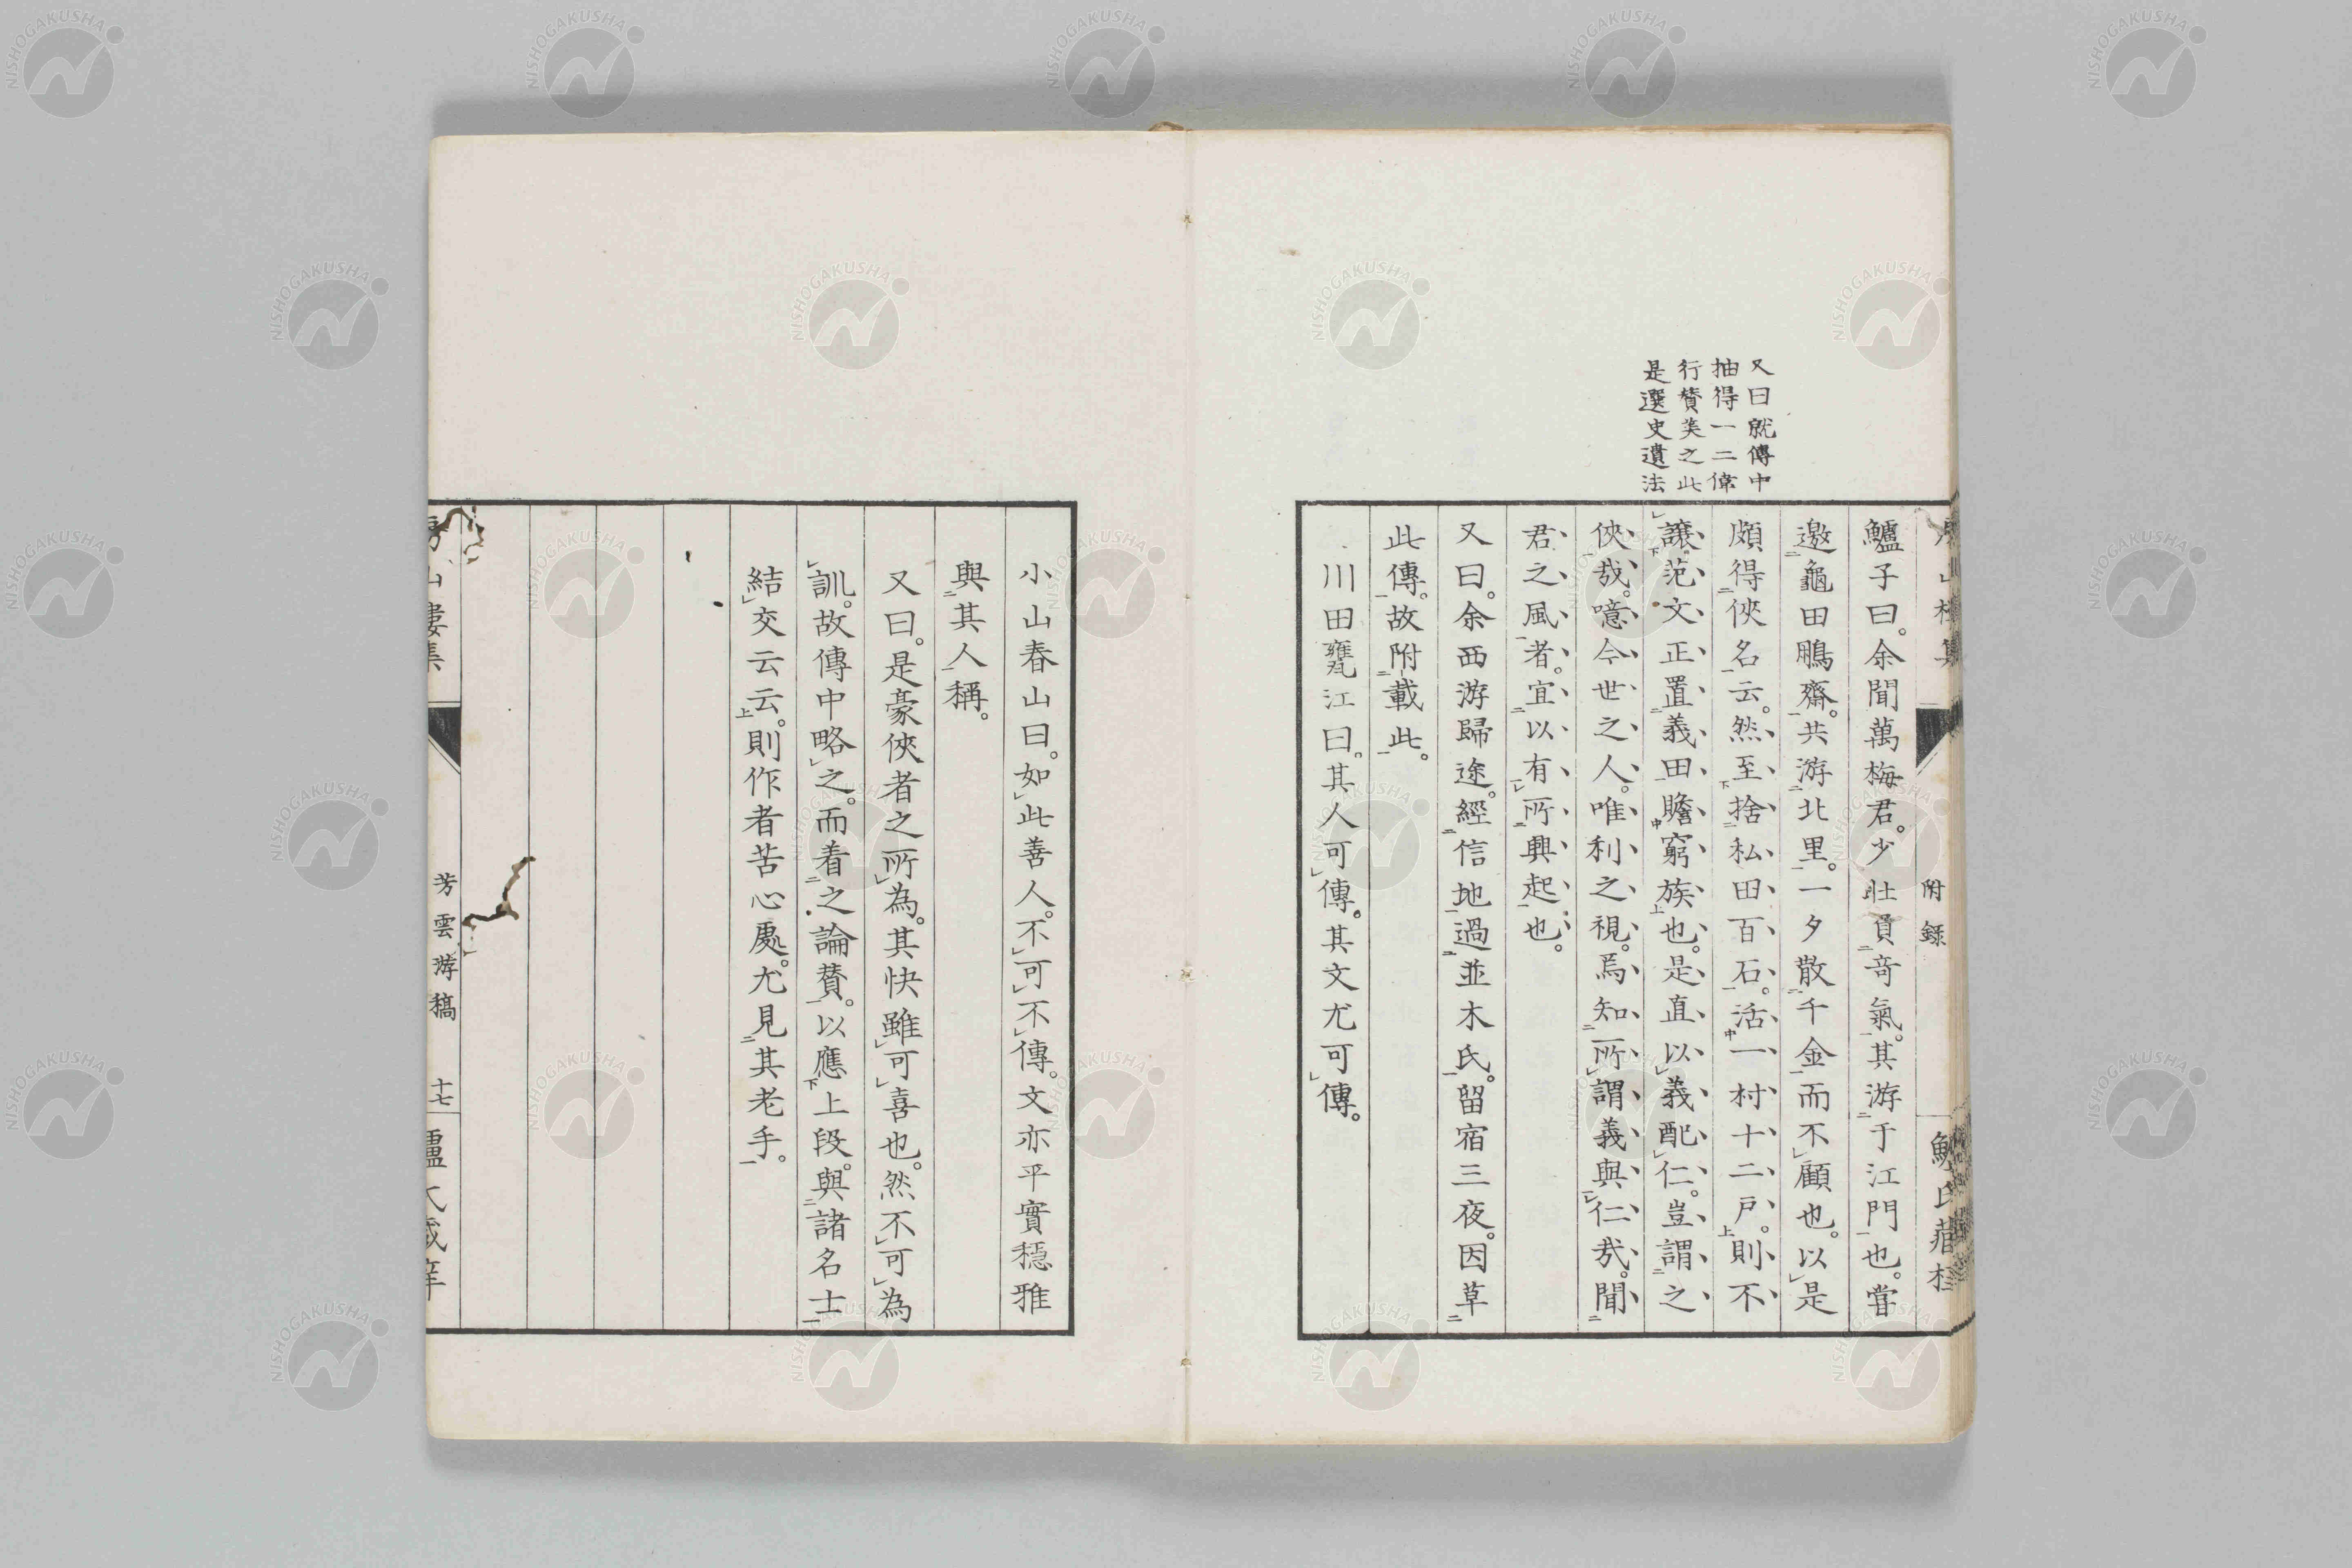 又曰就傳中
抽得一二偉
行賛美之此
是選史遺法
附錄
鱸子曰。余聞萬梅君。少壯負奇氣。其游于江門也。嘗
邀龜田鵬齋。共游北里。一夕散千金而不顧也。以是
頗得俠名云。然至捨私田百石。活一村十二戸。則不
讓范文正置義田贍窮族也。是直以義配仁。豈謂之
俠哉。噫今世之人。唯利之視。焉知所謂義與仁哉。聞
君之風者。宜以有所興起也。
又曰。余西游歸途。經信地過並木氏。留宿三夜。因草
此傳。故附載此。
川田甕江曰。其人可傳。其文尤可傳。
小山春山曰。如此善人。不可不傳。文亦平實穩雅
與其人稱。
又曰。是豪俠者之所為。其快雖可喜也。然不可為
訓。故傳中略之。而着之論賛。以應上段。與諸名士
結交云云。則作者苦心處。尤見其老手。
房山樓集
芳雲游稿
十七